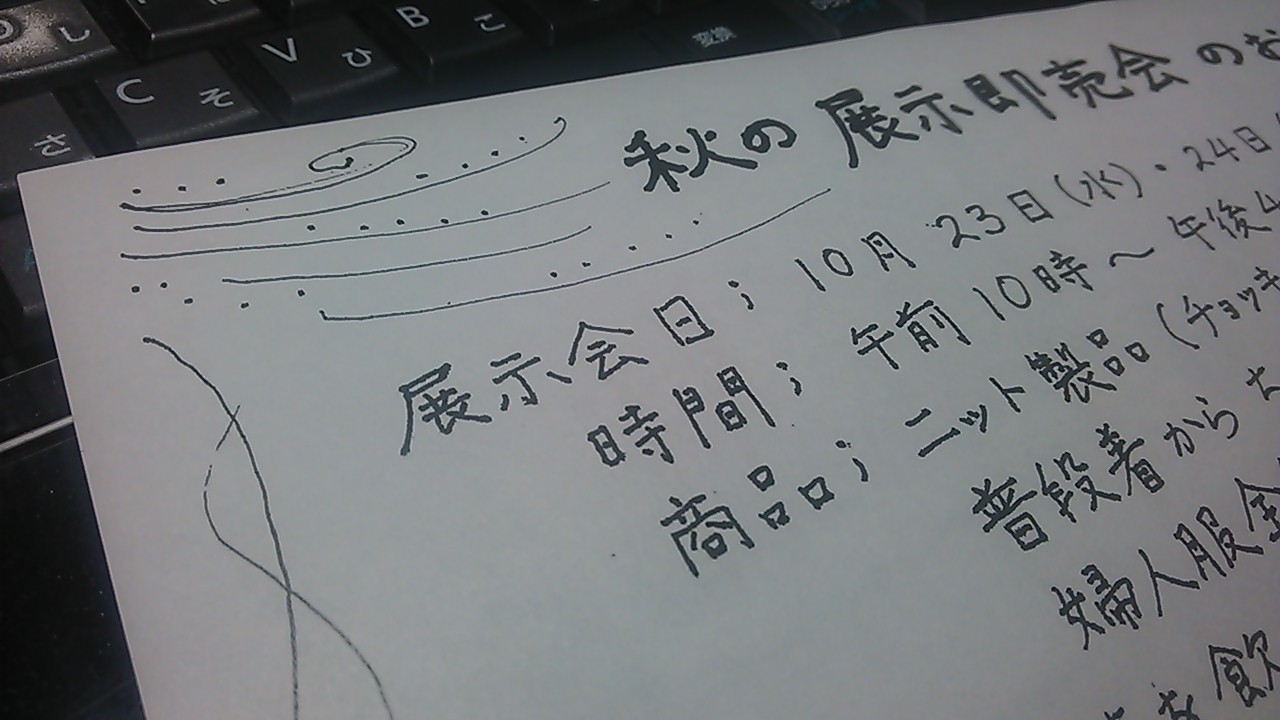 し
B こ
V ひ
変換
C そ
さ
秋の展示即売会のお
展示会日; 10月23日(水)・24日(
時間; 午前10時~午後4
商品; ニット製品(チョッキ
普段着から
婦人服全
飲